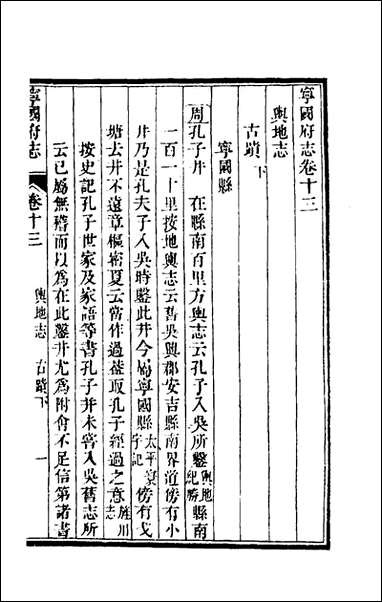 寧國府志卷十三
輿地志
古蹟下
寧國縣
周孔子井 在縣南百里方輿志云孔子入吳所鑿輿地紀勝縣南
一百一十里按地輿志云舊吳興郡安吉縣南界道傍有小
井乃是孔夫子入吳時鑿此井今屬寧國縣太平寰宇記傍有戈
塘去井不遠章樞密夏云當作過蓋取孔子經過之意旌川志
按史記孔子世家及家語等書孔子并未嘗入吳舊志所
云已屬無稽而以為在此鑿井尤為附會不足信第諸書
寧國府志 卷十三 輿地志 古蹟下 一